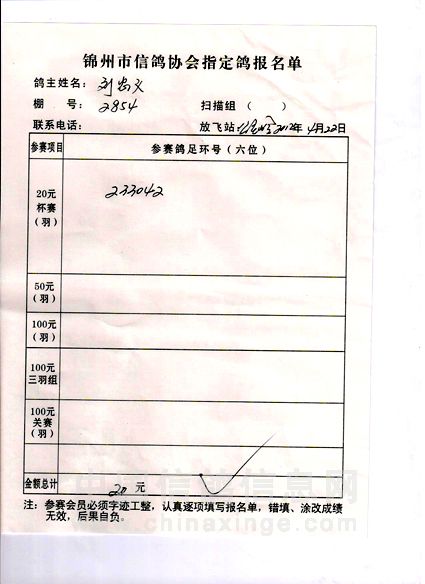 锦州市信鸽协会指定鸽报名单
鸽主姓名：
棚 号：2854 扫描组（ ）
联系电话： 放飞站： 2012年 4月22日
参赛项目 参赛鸽足环号（六位）
20元
杯赛
（羽）
233042
50元
（羽）
100元
（羽）
100元
三羽组
100元
关赛
（羽）
金额总计 20 元
注：参赛会员必须字迹工整，认真逐项填写报名单，错填、涂改成绩
无效，后果自负。
中国信鸽信息网
www.chinaxinge.com